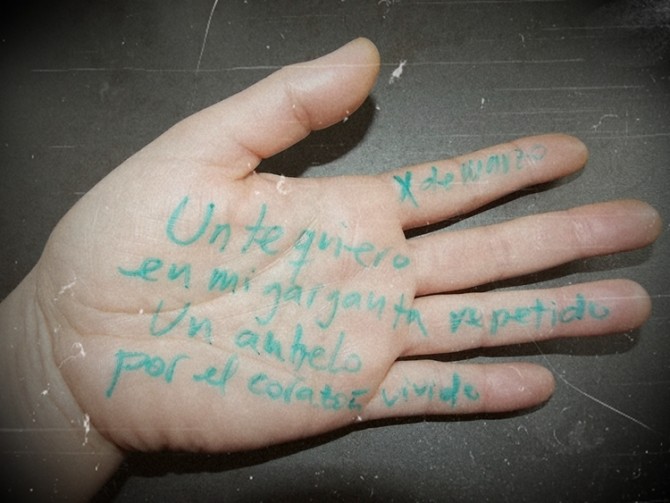 X de marzo
Un te quiero
en mi garganta repetido
Un anhelo
por el corazón vivido